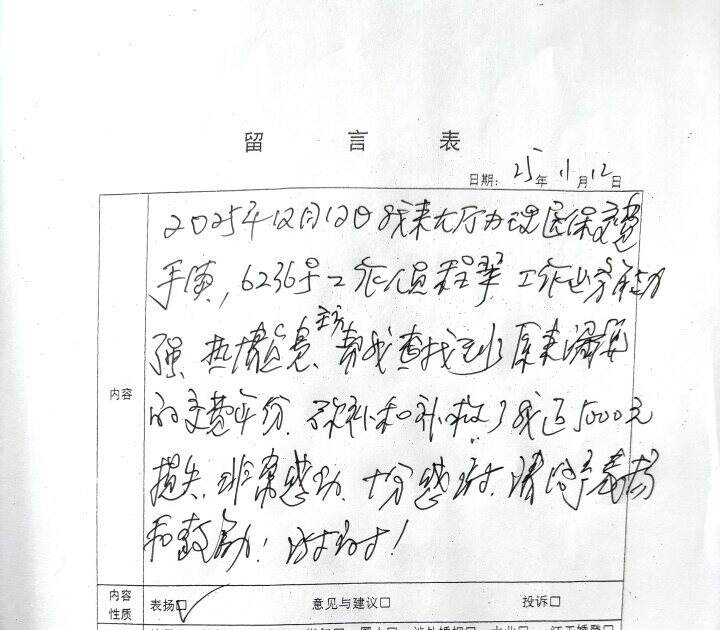 留言表
日期: 25年11月12日
2025年12月12日我来大厅办理医保交费
手续, 6236号工作人员程翠 工作业务能力
强、热情负责、主动帮我查找到了原来漏算
的交费年份、弥补和补救了我近5000元
损失、非常感动、十分感谢、请给予表扬
和鼓励! 谢谢!
内容
内容性质 表扬☑ 意见与建议□ 投诉□